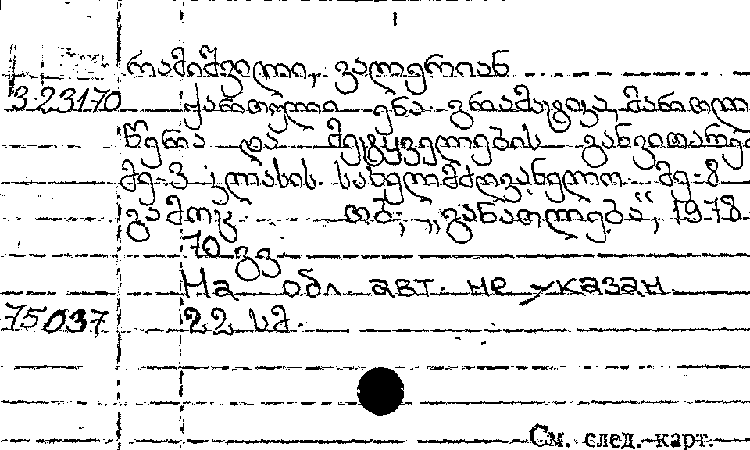 რამიშვილი, ვალერიან
323170 ქართული ენა. გრამატიკა, მართლ
წერა და მეტყველების განვითარებ
მე-3 კლასის. სახელმძღვანელო. მე-8
გამოც. თბ., „განათლება“, 1978
70 გვ
На обл. авт. не указан
75037 22 სმ.
См. след. карт.